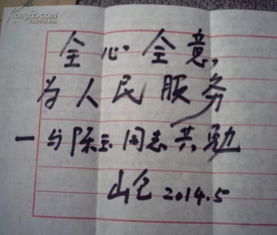 全心全意,
为人民服务
一与陈玉同志共勉
山仑 2014.5